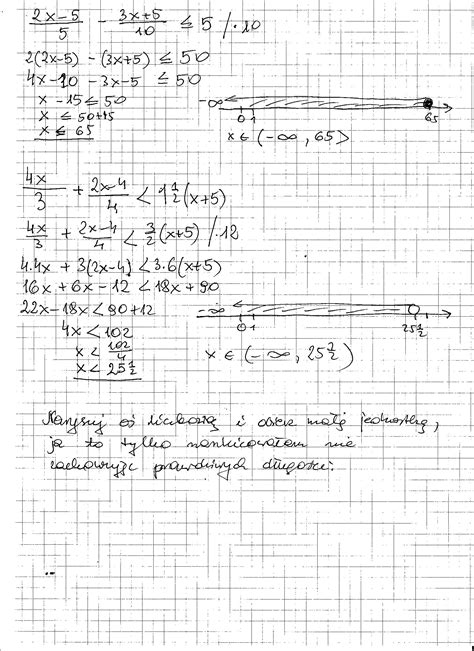 (2x-5)/5 - (3x+5)/10 ≤ 5 /·10
2(2x-5) - (3x+5) ≤ 50
4x-10 - 3x-5 ≤ 50
x -15 ≤ 50
x ≤ 50+15
x ≤ 65
-∞ 0 1 65
x ∈ (-∞, 65>
4x/3 + (2x-4)/4 < 1 1/2 (x+5)
4x/3 + (2x-4)/4 < 3/2 (x+5) /·12
4·4x + 3(2x-4) < 3·6(x+5)
16x + 6x - 12 < 18x + 90
22x - 18x < 90+12
4x < 102
x < 102/4
x < 25 1/2
-∞ 0 1 25 1/2
x ∈ (-∞, 25 1/2)
Narysuj oś liczbową i obierz małą jednostkę,
ja to tylko naszkicowałam nie
zachowując prawdziwych długości.